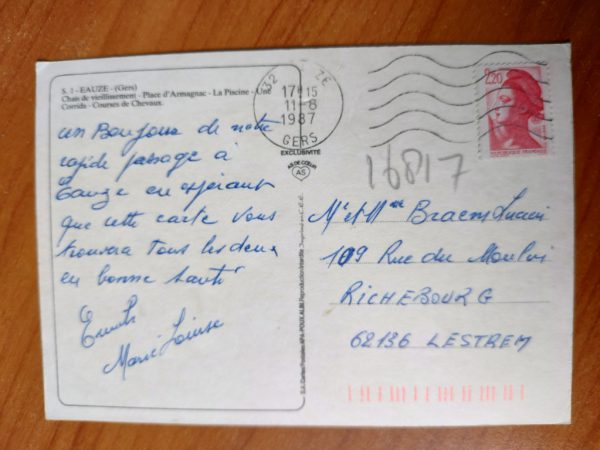 S. 1 - EAUZE - (Gers)
Chais de vieillissement - Place d'Armagnac - La Piscine - Une
Corrida - Courses de Chevaux.
un Bonjour de notre
rapide passage à
Eauze en espérant
que cette carte vous
trouvera tous les deux
en bonne santé
Marie Louise
32 ZE
17H15
11-8
1987
GERS
EXCLUSIVITÉ
AS DE CŒUR
AS
2,20
REPUBLIQUE FRANÇAISE
16817
Mr et Mme Braems Lucien
109 Rue du Moulin
RICHEBOURG
62136 LESTREM
Reproduction Interdite